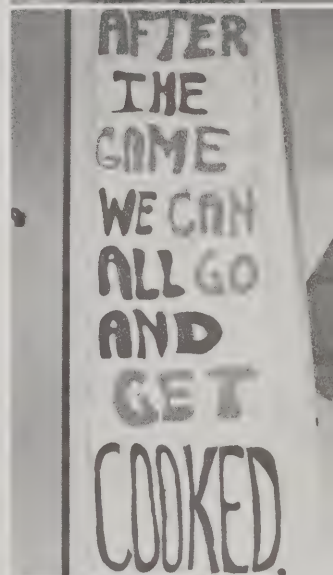 AFTER
THE
GAME
WE CAN
ALL GO
AND
GET
COOKED.